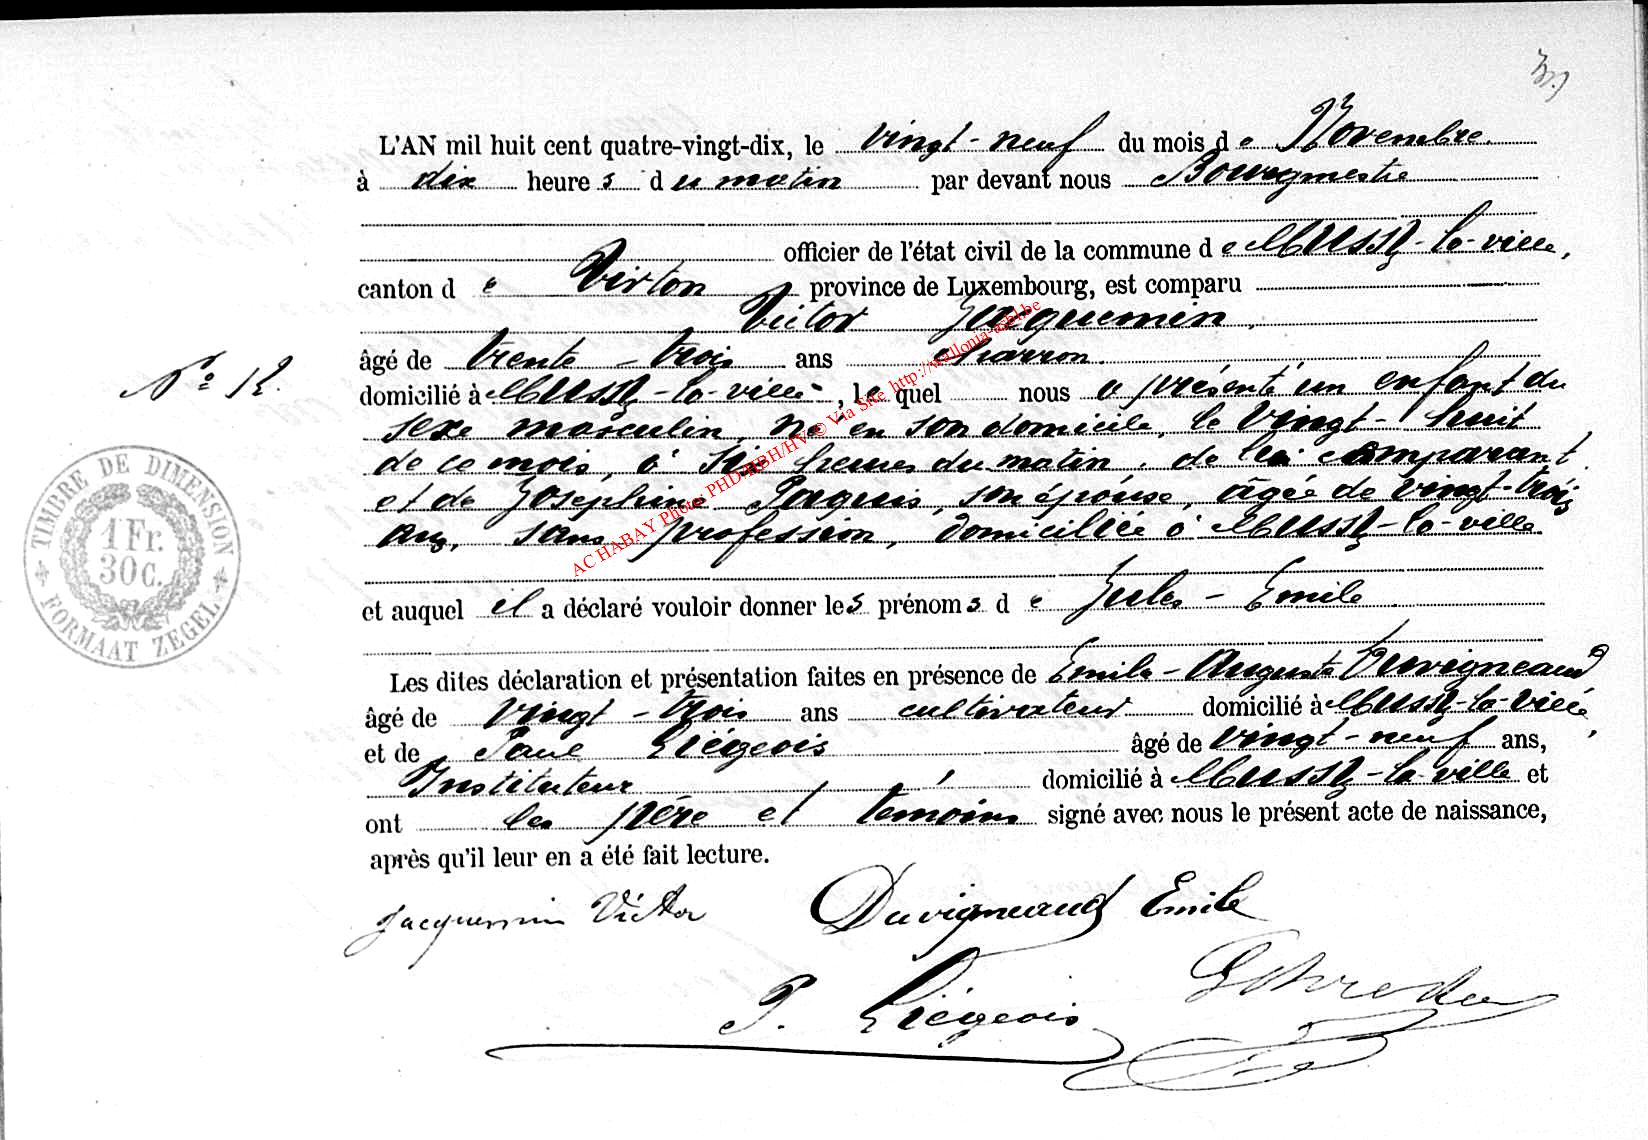 L'AN mil huit cent quatre-vingt-dix, le vingt-neuf du mois de Novembre
à dix heures du matin par devant nous Bourgmestre
officier de l'état civil de la commune de Mussy-la-ville,
canton de Virton province de Luxembourg, est comparu
Victor Jacquemin,
âgé de trente-trois ans charron.
N° 12.
domicilié à Mussy-la-ville, lequel nous a présenté un enfant du
sexe masculin, né en son domicile, le vingt-huit
de ce mois, à six heures du matin, de lui comparant
et de Joséphine Paquis, son épouse, âgée de vingt-trois
ans, sans profession, domiciliée à Mussy-la-ville
TIMBRE DE DIMENSION
1 Fr.
30 C.
FORMAAT ZEGEL
AC HABAY Photos PHD/HBH/HV © Via Site http://wallonia-asbl.be
et auquel il a déclaré vouloir donner les prénoms de Jules-Emile
Les dites déclaration et présentation faites en présence de Emile-Auguste Duvigneaud
âgé de vingt-trois ans cultivateur domicilié à Mussy-la-ville,
et de Paul Liégeois âgé de vingt-neuf ans,
Instituteur, domicilié à Mussy-la-ville et
ont les père et témoins signé avec nous le présent acte de naissance,
après qu'il leur en a été fait lecture.
Jacquemin Victor Duvigneaud Emile
P. Liégeois